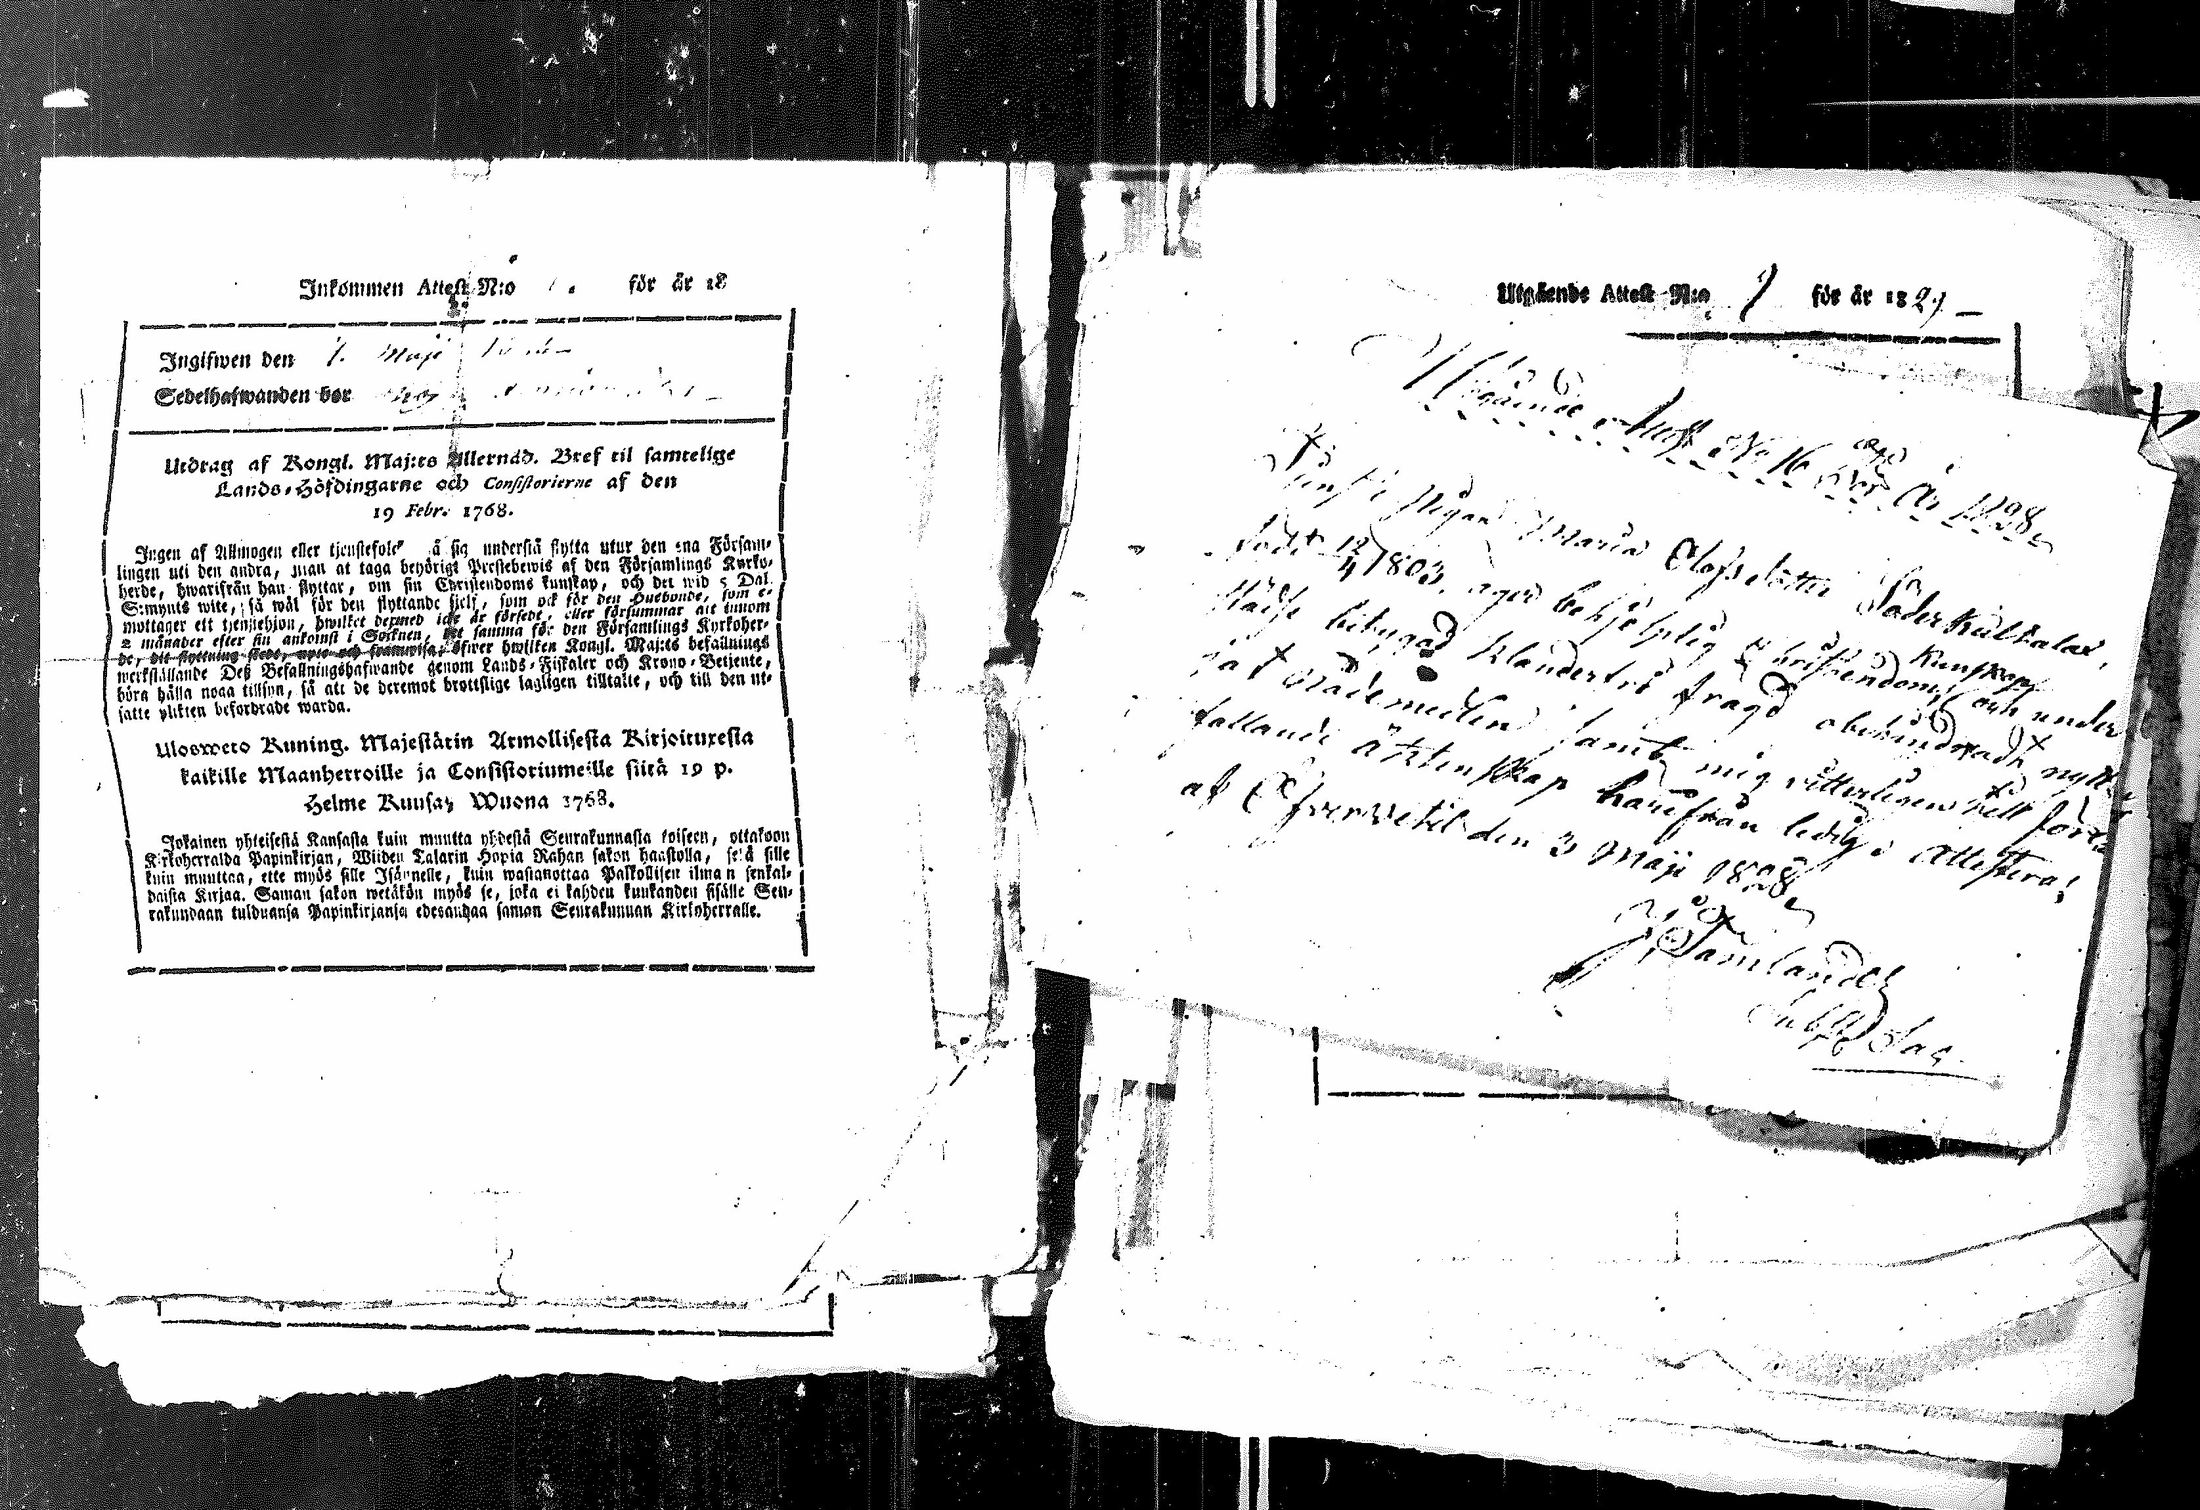 Inkommen Attest N:o för år 18
Ingifwen den 7. Maji
Sedelhafwanden bor
Utdrag af Kongl. Maj:ts Allernåd. Bref til samtelige
Lands-Höfdingarne och Consistorierne af den
19 Febr. 1768.
Ingen af Allmogen eller tjenstefolk å sig understå flytta utur den ena Försam-
lingen uti den andra, utan at taga behörigt Prestebewis af den Församlings Kyrko-
herde, hwarifrån han flyttar, om sin Christendoms kunskap, och det wid 5 Dal.
S:mynts wite, så wäl för den flyttande sjelf, som ock för den Husbonde, som e-
mottager ett tjenstehjon, hwilket dermed icke är försedt, eller försummar att innom
2 månader efter sin ankomst i Socknen, det samma för den Församlings Kyrkoher-
de, dit flyttning skedt, upte och framwisa, öfwer hwilken Kongl. Maj:ts befallnings
werkställande Deß Befallningshafwande genom Lands-Fiskaler och Krono-Betjente,
böra hålla noga tillsyn, så att de deremot brottslige lagligen tilltalte, och till den ut-
satte plikten befordrade warda.
Ulosweto Kuning. Majestätin Armollisesta Kirjoituxesta
kaikille Maanherroille ja Consistoriumeille siitä 19 p.
Helme Kuusaz Wuona 1768.
Jokainen yhteisestä Kansasta kuin muutta yhdestä Seurakunnasta toiseen, ottakoon
Kirkoherralda Papinkirjan, Wiiden Talarin Hopia Rahan sakon haastolla, sekä sille
kuin muuttaa, ette myös sille Isännelle, kuin wastanottaa Palkollisen ilman senkal-
daista Kirjaa. Saman sakon wetäkön myös se, joka ei kahden kuukauden sisälle Seu-
rakundaan tulduansa Papinkirjansa edesandaa saman Seurakunnan Kirkoherralle.
Utgående Attest N:o 7 för år 1829
Utgående Attest No 16 för År 1828
Pigan Maria Olofsdotter Söderkultalax,
född 12/4 1803, ager behjelplig Christendoms kunskap och under
städse betygad klanderfri frägd obehindradt nytt-
jat nådemedlen samt mig vitterligen till före-
fallande äktenskap härifrån ledig; Attesteras
af Öfvervetil den 3 Maji 1828
J. Tamlander
Subst. Sac.